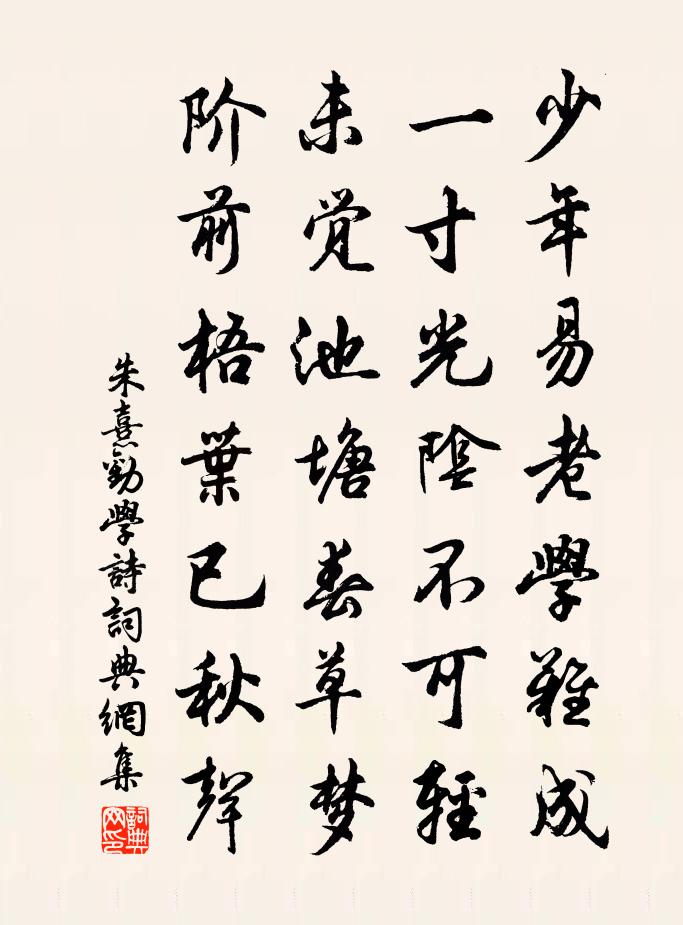 少年易老學難成
一寸光陰不可輕
未觉池塘春草梦
阶前梧葉已秋聲
朱熹勸學詩詞典網集
詞典網印